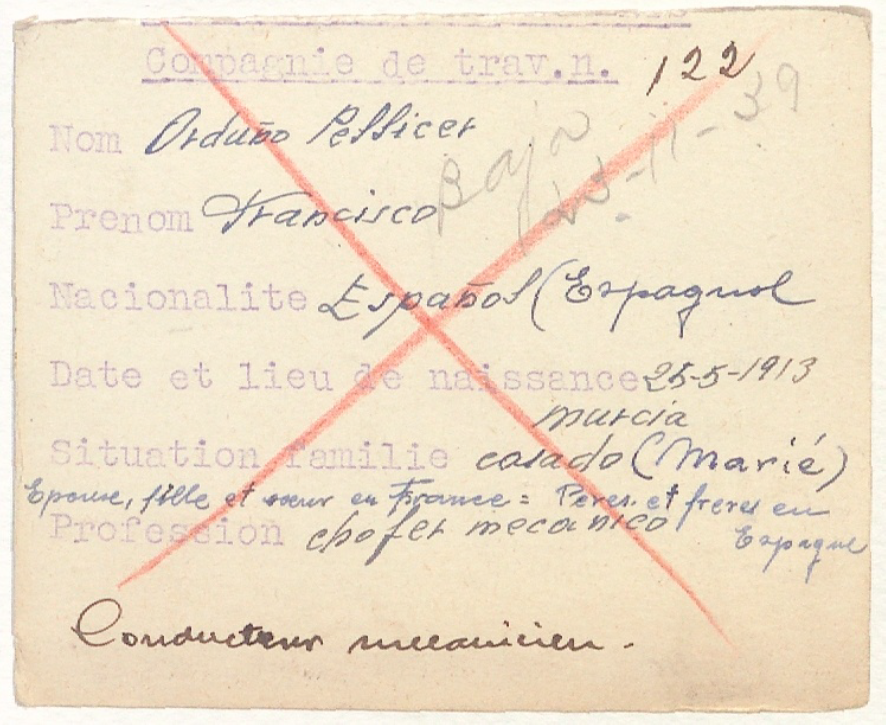 Compagnie de trav.n. 122
Nom Orduño Pellicer
Baja
23-11-39
Prenom Francisco
Nacionalite Español (Espagnol
Date et lieu de naissance 25-5-1913
murcia
Situation familie casado (Marié)
Epouse, fille et sœur en France = Peres et freres en
Espagne
Profession chofer mecanico
Conducteur mecanicien.